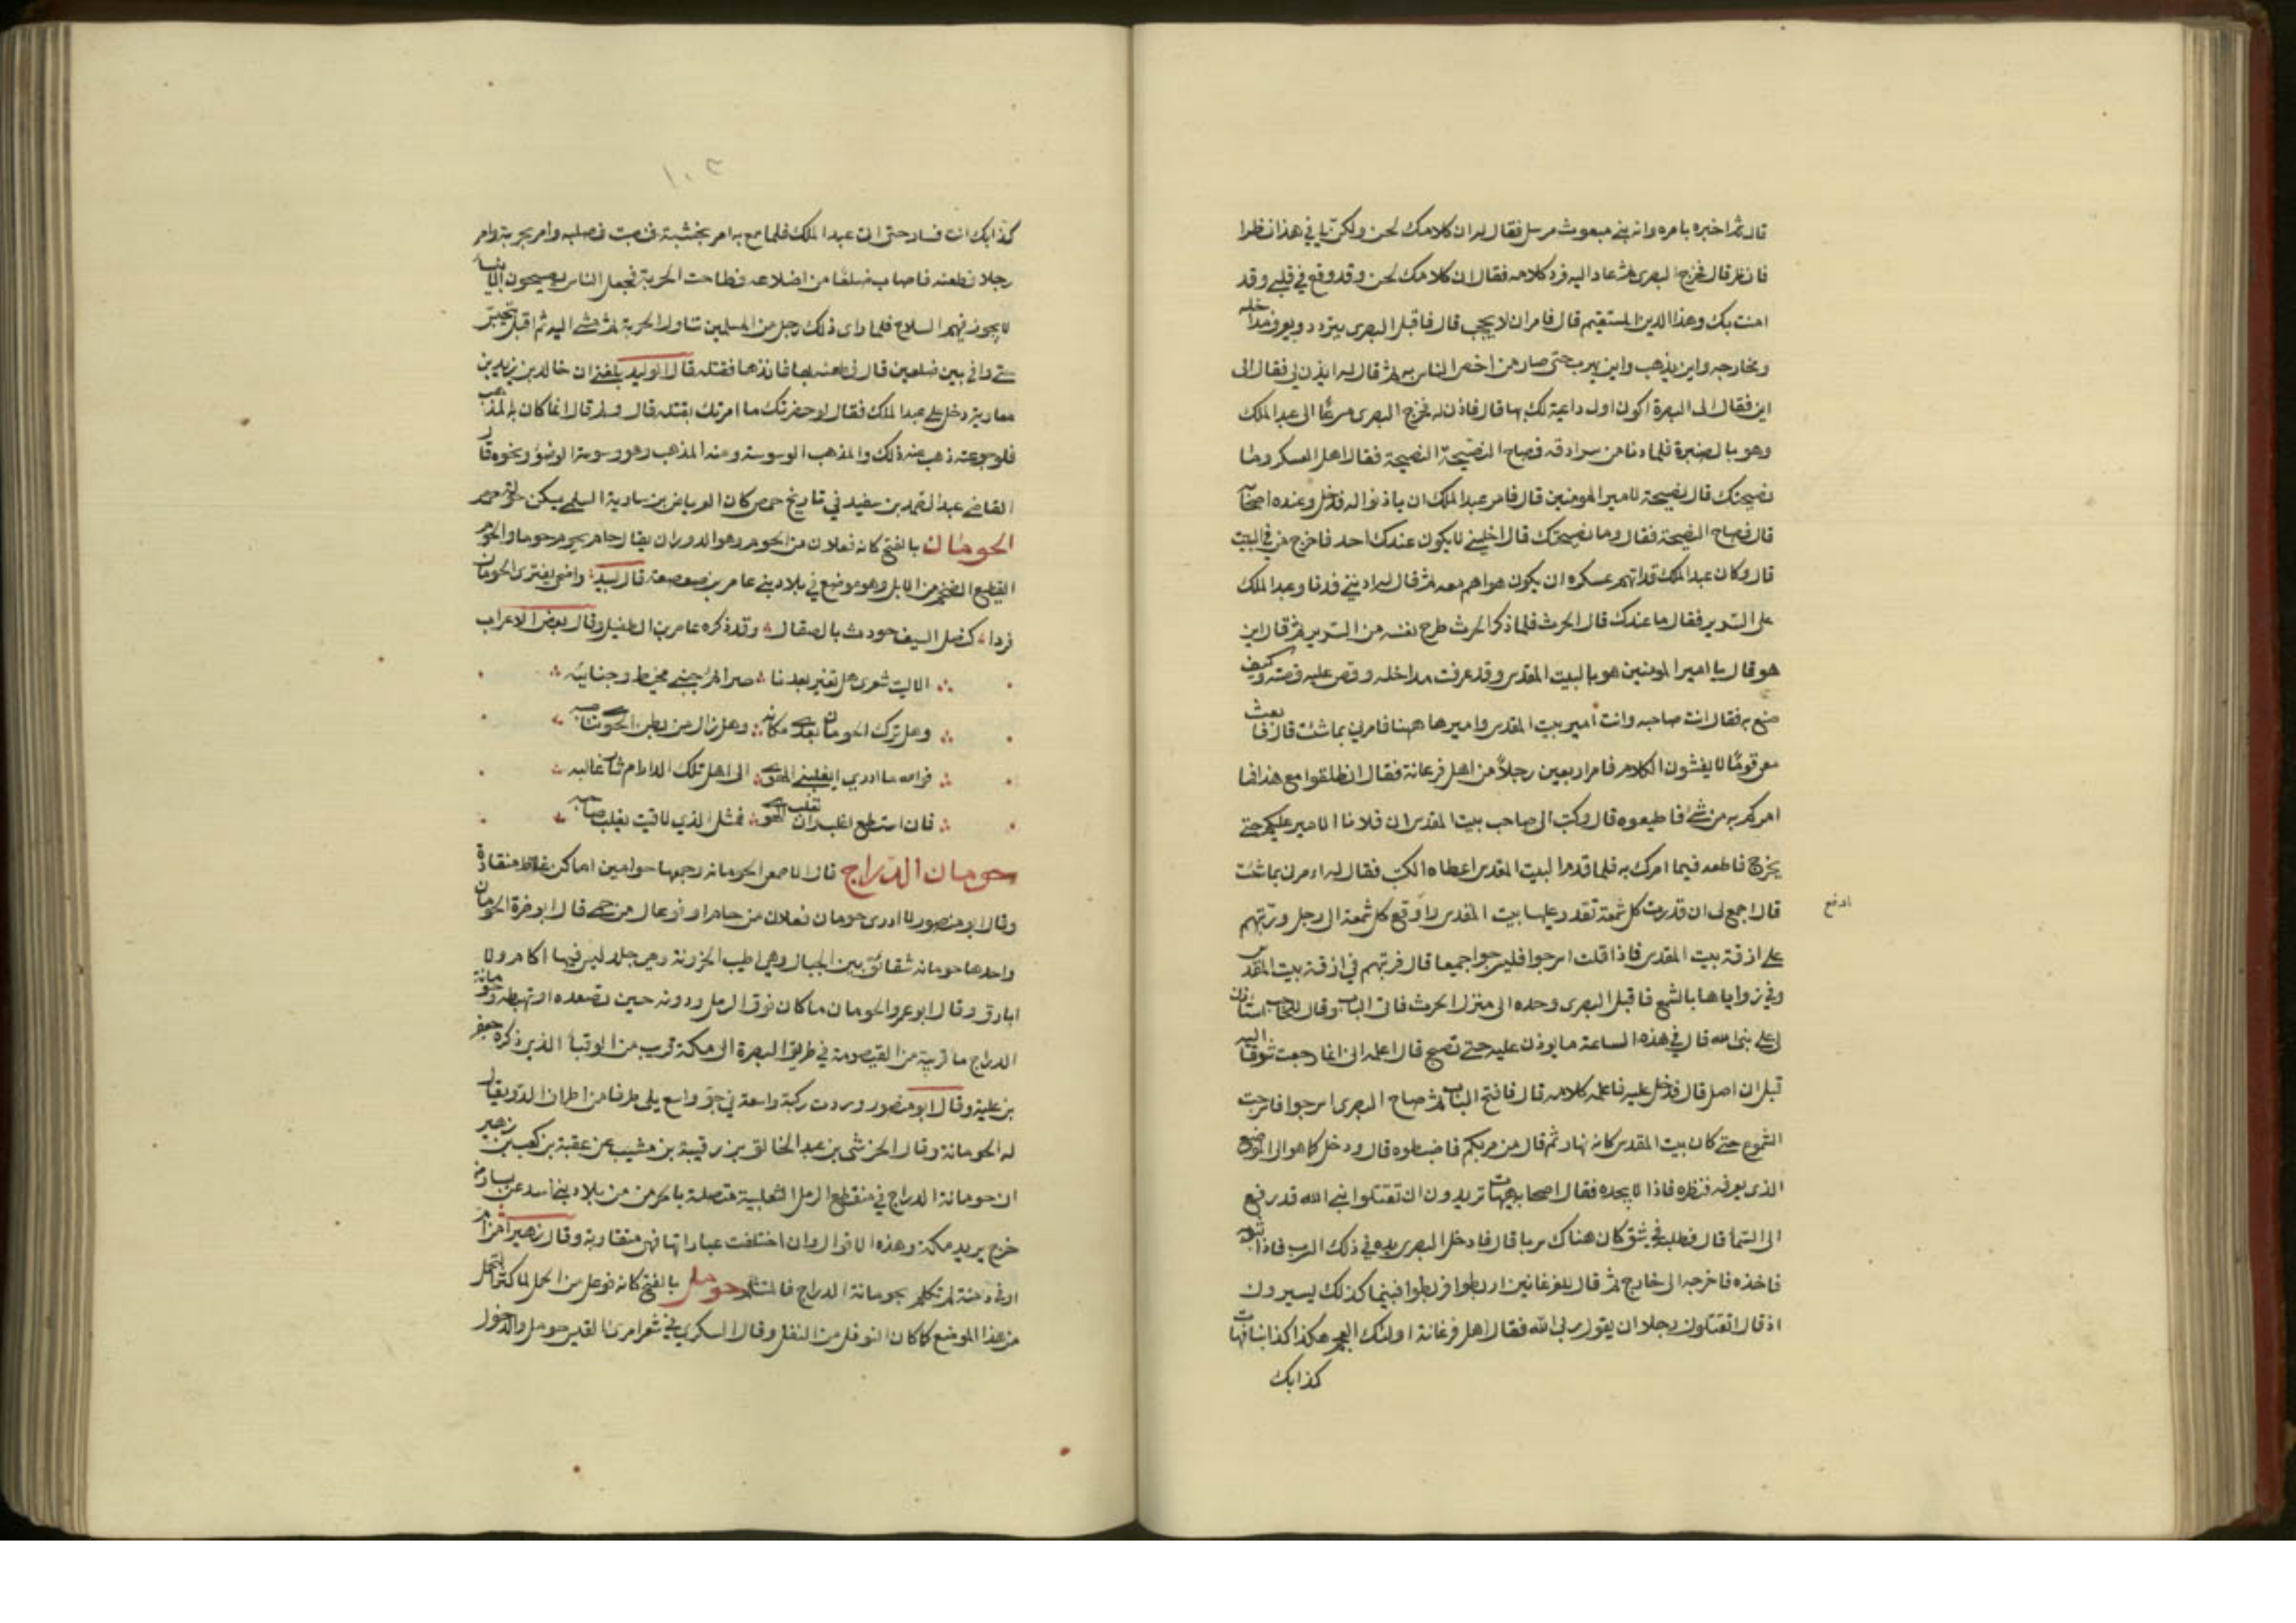 قال ثم اخبره بامره وانه نبي مبعوث مرسل فقال له ان كلامك لحسن ولكن لي في هذا نظرا
فانظر قال فخرج البصري ثم عاد اليه فرد كلامه فقال ان كلامك لحسن وقد وقع في قلبي وقد
امنت بك وهذا الدين المستقيم قال فامر ان لا يحجب قال فاقبل البصري يتردد ويعرف مداخله
ومخارجه واين يذهب واين يهرب حتى صار من اخص الناس به ثم قال له ايذن لي فقال الى
اين فقال الى البصرة اكون اول داعية لك بها قال فاذن له فخرج البصري مسرعًا الى عبد الملك
وهو بالصنبرة فلما دنا من سرادقه فصاح النصيحة النصيحة فقال اهل العسكر وما
نصيحتك قال نصيحة لامير المومنين قال فامر عبد الملك ان ياذنوا له فدخل وعنده اصحابه
قال فصاح النصيحة فقال وما نصيحتك قال اخلني لا يكون عندك احد فاخرج من في البيت
قال وكان عبد الملك قد اتهم عسكره ان يكون هواهم معه ثم قال له ادنني فدنا وعبد الملك
على السرير فقال ما عندك قال الحرث فلما ذكر الحرث طرح نفسه من السرير ثم قال اين
هو قال يا امير المومنين هو بالبيت المقدس وقد عرفت مداخله وقص عليه قصته وكيف
صنع به فقال انت صاحبه وانت أمير بيت المقدس واميرها ههنا فامرني بما شئت قال فابعث
معي قومًا لا يفشون الكلام فامر اربعين رجلاً من اهل فرغانة فقال انطلقوا مع هذا فما
امركم به من شئ فاطيعوه قال وكتب الى صاحب بيت المقدس ان فلانا الامير عليكم حتى
يخرج فاطعه فيما امرك به فلما قدم البيت المقدس اعطاه الكتب فقال له مرني بما شئت
قال اجمع لي ان قدرت كل شمعة تقدر عليها بيت المقدس وادفع كل شمعة الى رجل ورتبهم
ادفع
على ازقة بيت المقدس فاذا قلت اسرجوا فليسرجوا جميعا قال فرتبهم في ازقة بيت المقدس
وفي زواياها بالشمع فاقبل البصري وحده الى منزل الحرث فاتى الباب وقال للحاجب استاذن
لي على نبي الله قال في هذه الساعة ما يوذن عليه حتى تصبح قال اعلمه اني انما رجعت شوقا اليه
قبل ان اصل قال فدخل عليه فاعلمه كلامه قال فافتح الباب ثم صاح البصري اسرجوا فاسرجت
الشموع حتى كان بيت المقدس كانه نهار ثم قال من مر بكم فاضبطوه قال ودخل كما هو الى الموضع
الذي يعرفه فنظره فاذا لا يجده فقال اصحابه هيهات تريدون ان تقتلوا نبي الله قد رفع
الى السما قال فطلبه في شق كان هناك سربا قال فادخل البصري يده في ذلك السرب فاذا بثوبه
فاخذه فاخرجه الى خارج ثم قال للفرغانيين اربطوا فربطوا فبينما كذلك يسيرون
اذ قال اتقتلون رجلا ان يقول ربي الله فقال اهل فرغانة اولئك العجم هكذا كذابنا فهات
كذابك
١٠٣
كذابك انت فسار حتى اتى عبد الملك فلما سمع به امر بخشبة فنصبت فصلبه وامر بحربة وامر
رجلا فطعنه فاصاب ضلعًا من اضلاعه فطاحت الحربة فجعل الناس يصيحون الانبياء
لا يجوز فيهم السلاح فلما راى ذلك رجل من المسلمين تناول الحربة ثم مشى اليه ثم اقبل يتحسس
حتى وافى بين ضلعين قال فطعنه بها فانفذها فقتله قال الوليد بلغني ان خالد بن يزيد بن
معاوية دخل على عبد الملك فقال لو حضرتك ما امرتك بقتله قال ولم قال انما كان به المذهب
فلو جوعته ذهب عنه ذلك والمذهب الوسوسة ومنه المذهب وهو وسوسة الوضوء ونحوه قال
القاضي عبد الصمد بن سعيد في تاريخ حمص كان العرباض بن سارية السلمي يسكن حولة حمص
الحومان بالفتح كانه فعلان من الحوم وهو الدوران يقال حام يحوم حوما والحوم
القطيع الضخم من الابل وهو موضع في بلاد بني عامر بن صعصعة قال لبيد واضحى يقترى الحومان
فردا كنصل السيف حودث بالصقال وقد ذكره عامر بن الطفيل وقال بعض الاعراب
الا ليت شعري هل تغير بعدنا صرائم جنبي مخيط وجنايبه
وهل ترك الحومان بعدي مكانه وهل زال من بطن الحوتا
فوالله ما ادري ايغلبني الهوى الى اهل تلك الدار ام انا غالبه
فان استطع اغلب وان تغلب الهوى فمثل الذي لاقيت يغلب صاحبه
حومان الدراج قال الاصمعي الحومانه وجمعها حوامين اماكن غلاظ منقادة
وقال ابو منصور لا ادري حومان فعلان من حام او فوعال من حمى قال ابو خرة الحومان
واحدها حومانه شقائق بين الجبال وهي اطيب الحزونة وهي جلد ليس فيها اكام ولا
ابارق وقال ابو عمرو الحومان ما كان فوق الرمل ودونه حين تصعده او تهبطه وحومانة
الدراج ما قريبة من القيصومة في طريق البصرة الى مكة قرب من الوقبأ الذي ذكره جعفر
بن علبة وقال ابو منصور وردت ركية واسعة في جو واسع يلى طرفا من اطراف الدو يقال
له الحومانة وقال الحرشي بن عبد الخالق بن رقيبة بن مشيب بن عقبة بن كعب بن زهير
ان حومانة الدراج في منقطع الرمل الثعلبية متصلة بالحزن من بلاد بني اسد عن يسار من
خرج يريد مكة وهذه الاقوال وان اختلفت عباراتها فهي متقاربة وقال زهير أمن ام
اوفى دمنة لم تكلم بحومانة الدراج فالمتثلم حومل بالفتح كانه فوعل من الحمل لما كثر الحمل
من هذا الموضع كما كان النوفل من النفل وقال السكري في شعر امرئ القيس حومل والدخول